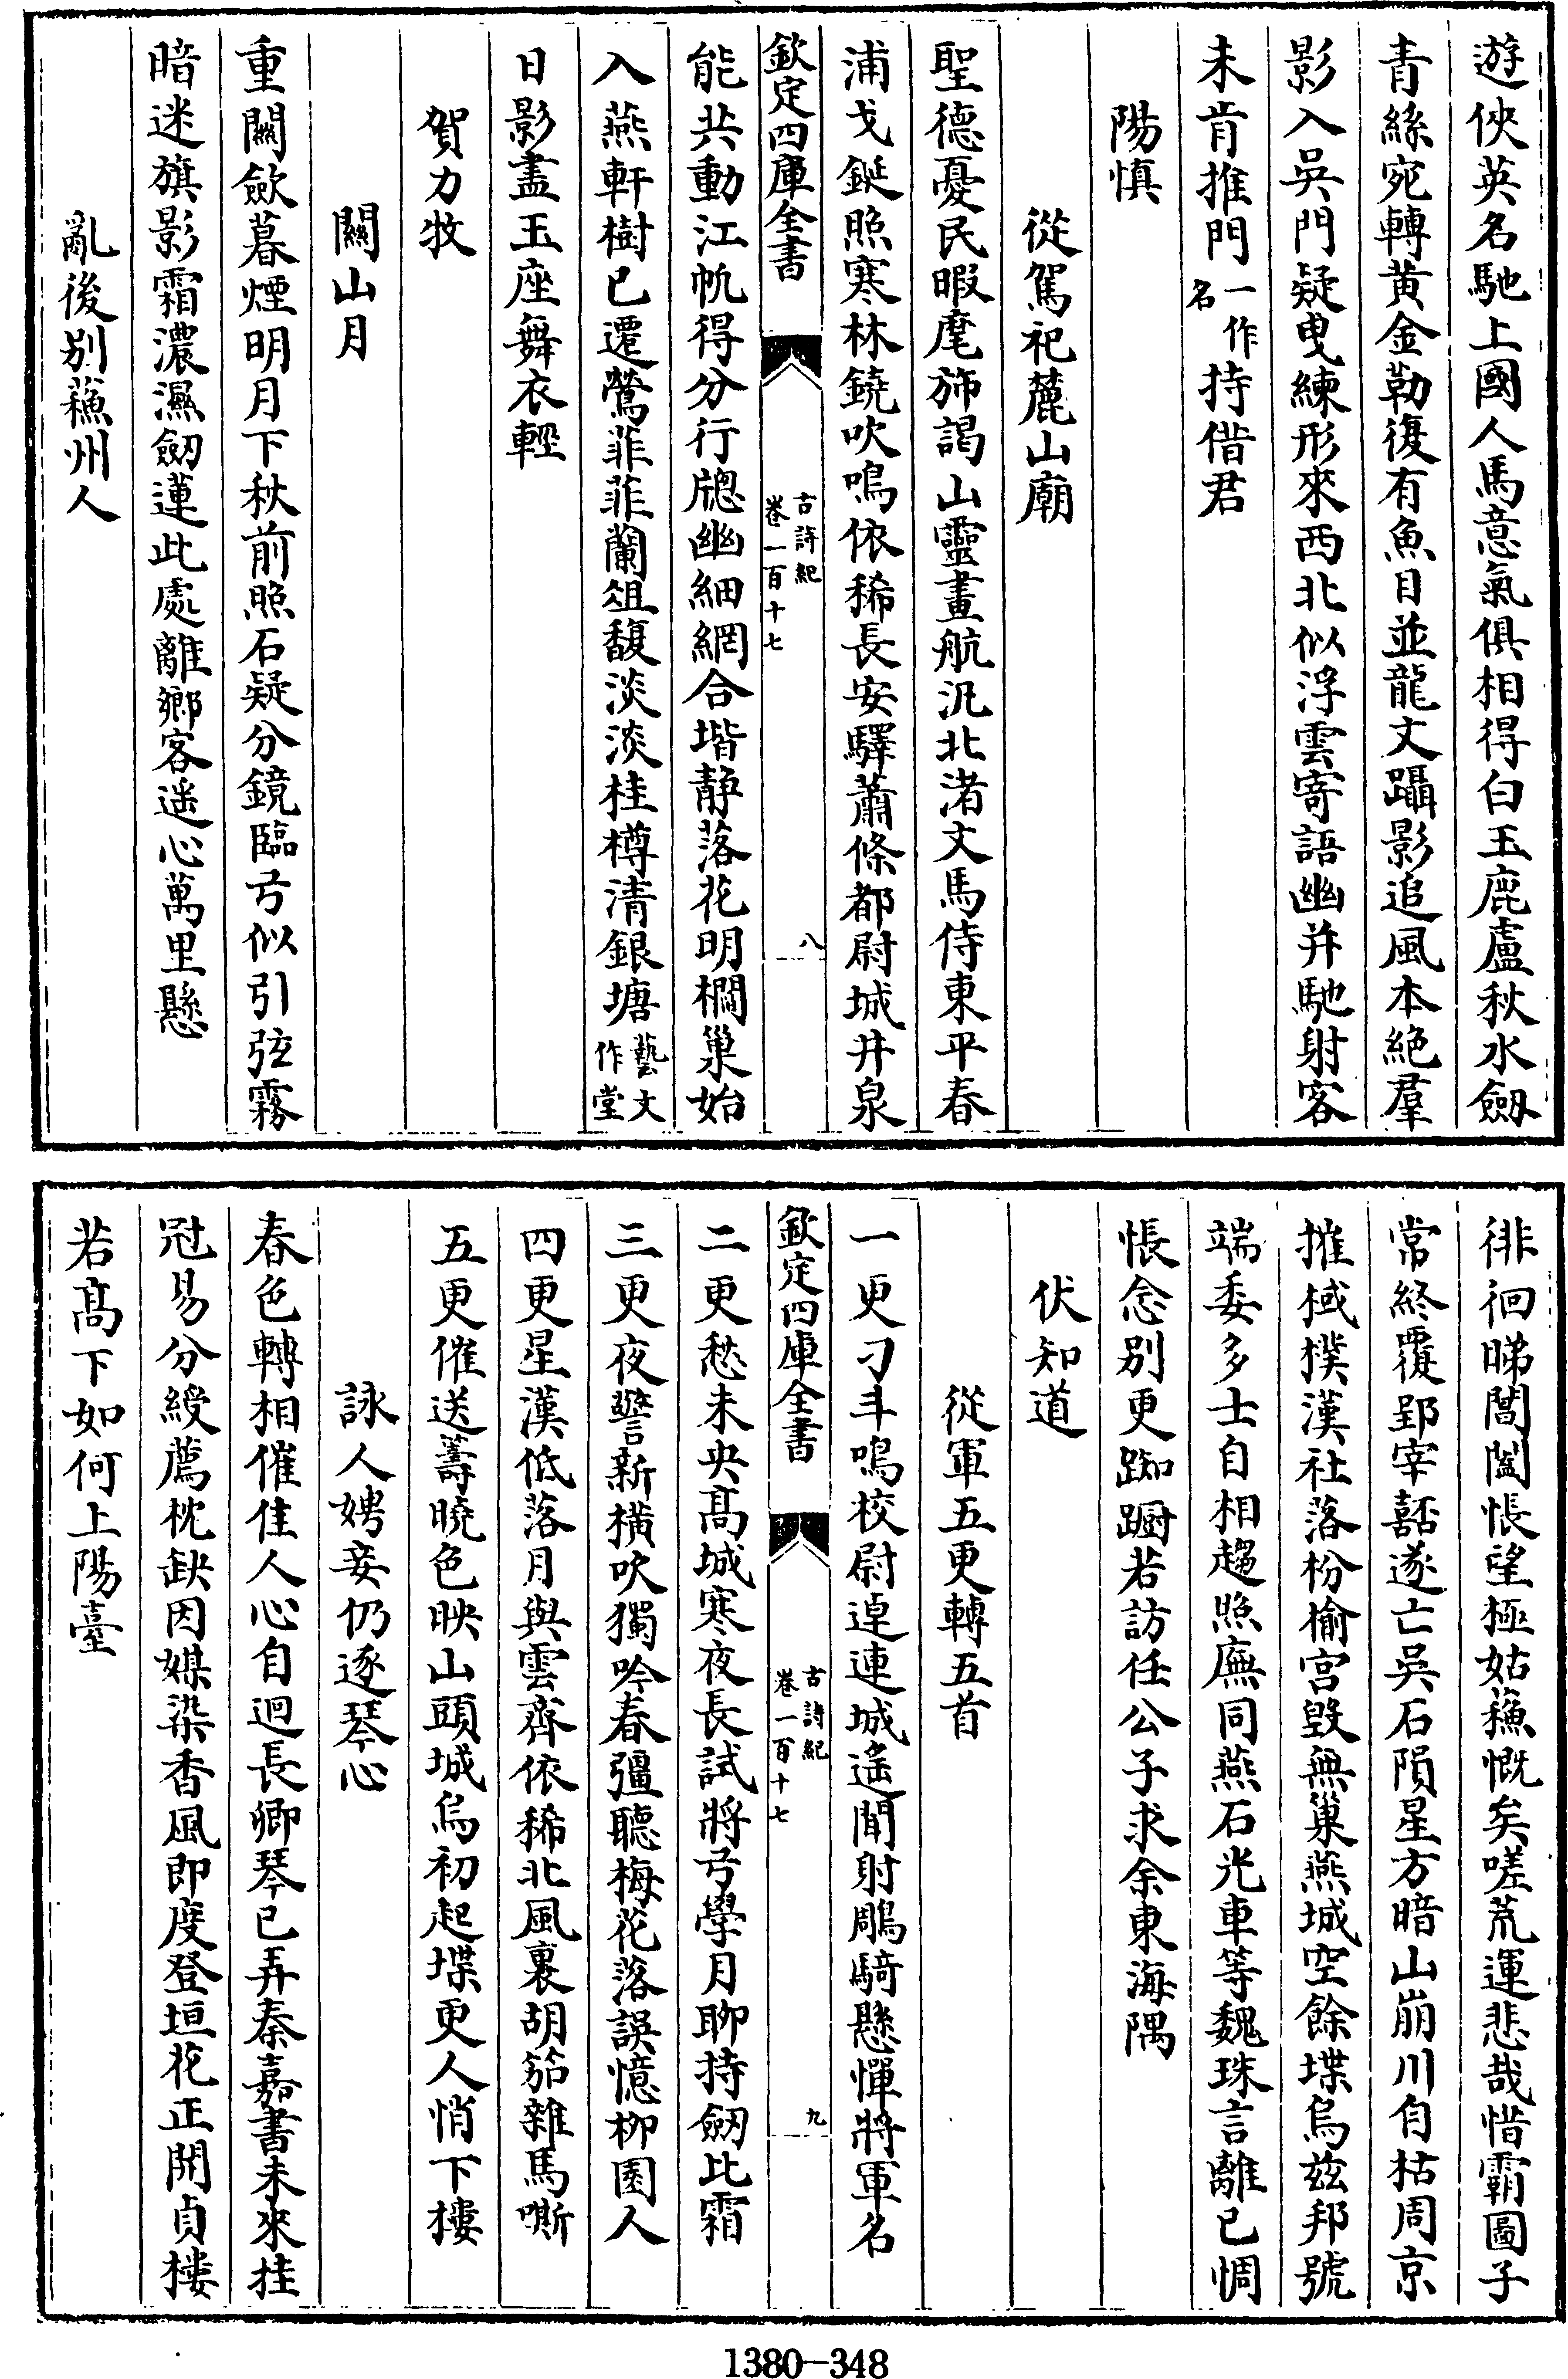 遊俠英名馳上國人馬意氣俱相得白玉鹿盧秋水劒
青絲宛轉黃金勒復有魚目並龍文躡影追風本絶羣
影入吳門疑曳練形來西北似浮雲寄語幽并馳射客
未肯推門一作名持借君
陽慎
從駕祀麓山廟
聖德憂民暇麾斾謁山靈畫航汎北渚文馬侍東平春
浦戈鋋照寒林鐃吹鳴依稀長安驛蕭條都尉城井泉
欽定四庫全書
古詩紀
卷一百十七
八
能共動江帆得分行牕幽細網合堦静落花明櫩巢始
入燕軒樹已遷鶯菲菲蘭俎馥淡淡桂樽清銀塘藝文作堂
日影盡玉座舞衣輕
賀力牧
關山月
重關歛暮煙明月下秋前照石疑分鏡臨弓似引弦霧
暗迷旗影霜濃濕劒蓮此處離鄉客遥心萬里懸
亂後别蘓州人
徘徊睇閶闔悵望極姑蘓慨矣嗟荒運悲哉惜霸圖子
常終覆郢宰嚭遂亡吳石隕星方暗山崩川自枯周京
摧棫樸漢社落枌榆宫毁無巢燕城空餘堞烏兹邦號
端委多士自相趨照廡同燕石光車等魏珠言離已惆
悵念别更踟蹰若訪任公子求余東海隅
伏知道
從軍五更轉五首
一更刁斗鳴校尉逴連城遥聞射鵰騎懸憚將軍名
欽定四庫全書
古詩紀
卷一百十七
九
二更愁未央髙城寒夜長試將弓學月聊持劒比霜
三更夜警新横吹獨吟春彊聽梅花落誤憶栁園人
四更星漢低落月與雲齊依稀北風裏胡笳雜馬嘶
五更催送籌曉色映山頭城烏初起堞更人悄下樓
詠人娉妾仍逐琴心
春色轉相催佳人心自迴長卿琴已弄秦嘉書未來挂
冠易分綬薦枕缺因媒染香風即度登垣花正開貞樓
若髙下如何上陽臺
1380-348